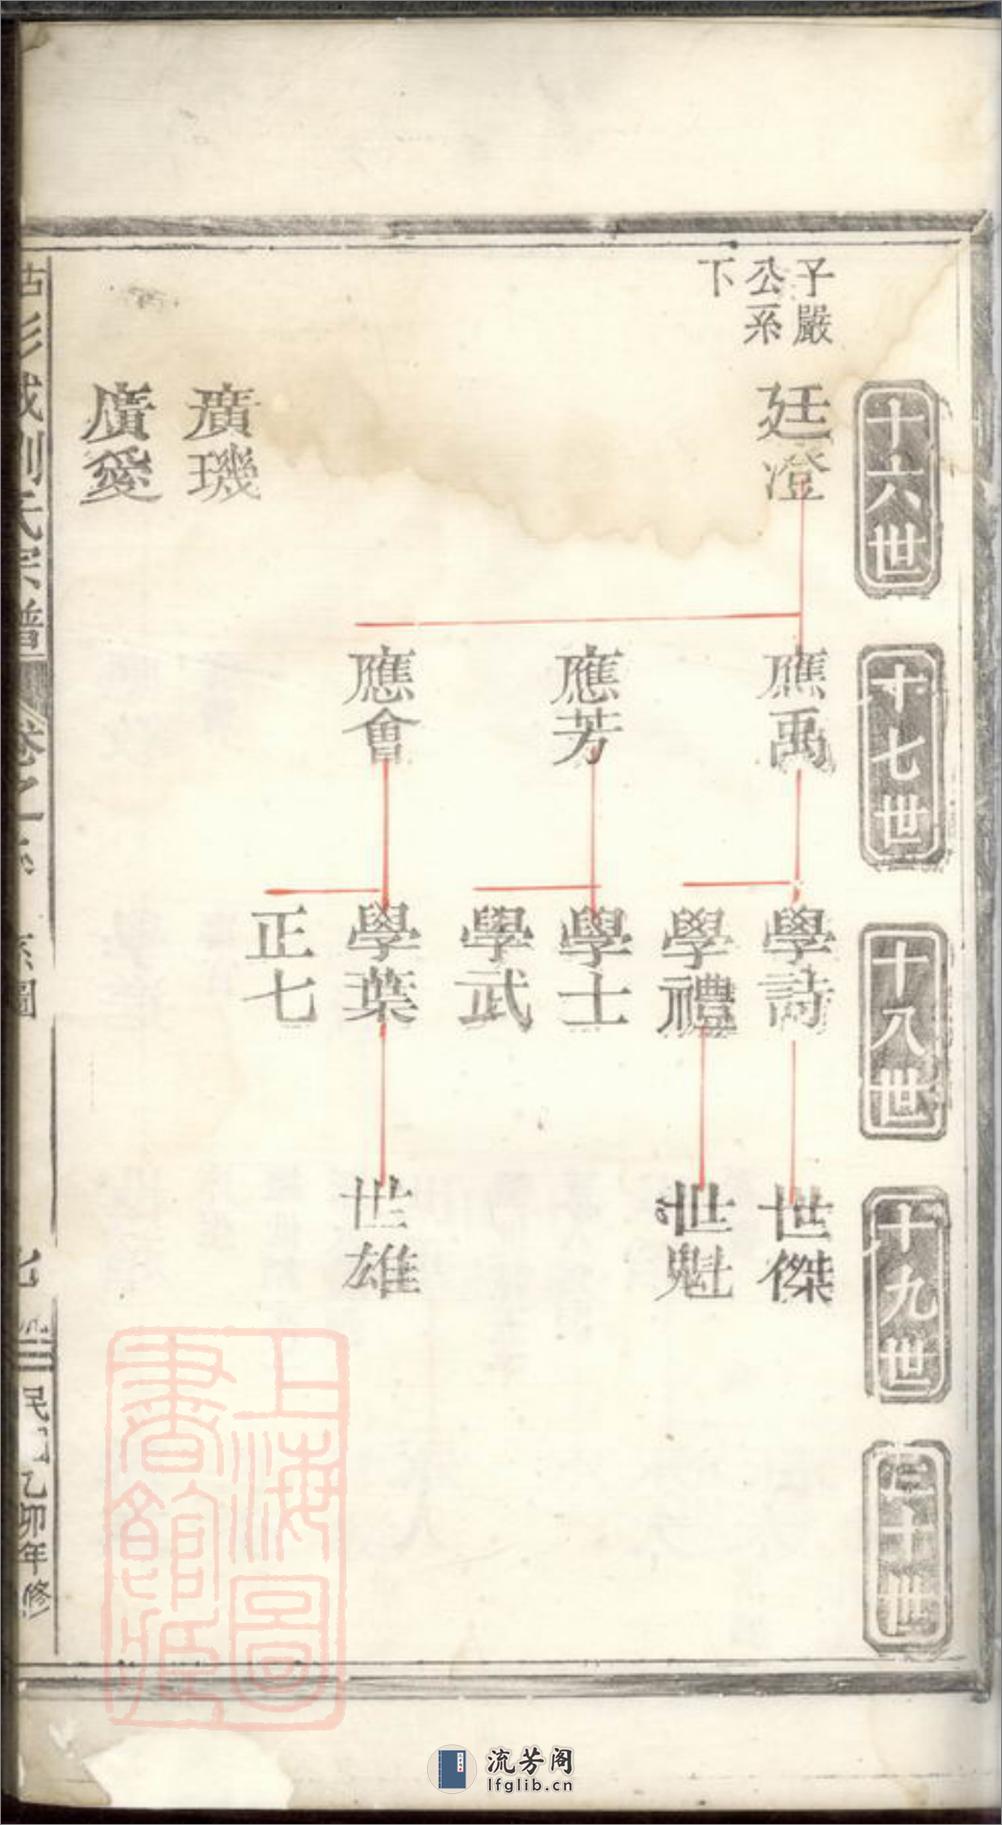 十六世
十七世
十八世
十九世
二十世
子嚴
公系
下
廷澄
廣璣
廣愛
應禹
應芳
應會
學詩
學禮
學士
學武
學葉
正七
世傑
世魁
世雄
彭城劉氏宗譜
卷之一
系圖
民國乙卯年修
上海圖
書館藏
流芳阁
lfglib.cn